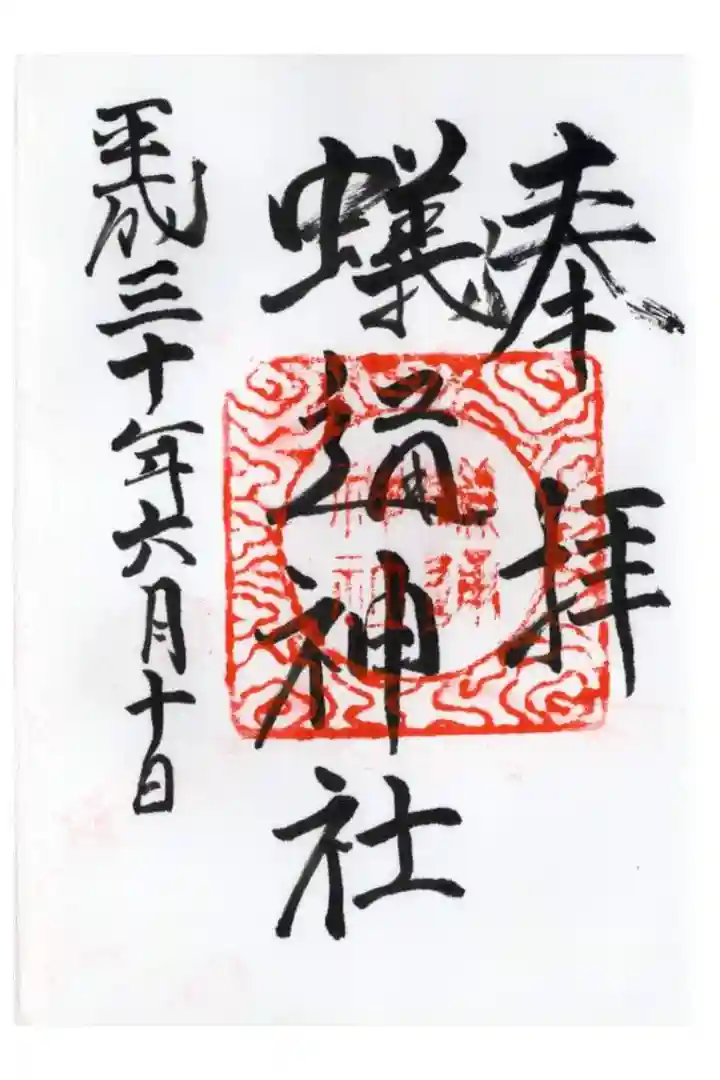 奉拝
蟻通神社
平成三十年六月十日